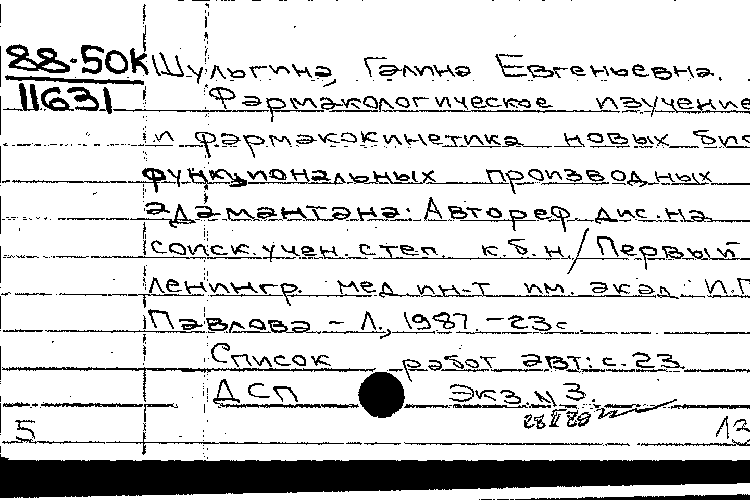 88-50К Шульгина, Галина Евгеньевна.
11631 Фармакологическое изучение
и фармакокинетика новых био
функциональных производных
адамантана: Автореф. дис. на
соиск. учен. степ. к.б.н./Первый
Ленингр. мед. ин-т им. акад. И.П
Павлова - Л., 1987. - 23с.
Список работ авт: с. 23
ДСП Экз. N 3.
5 13